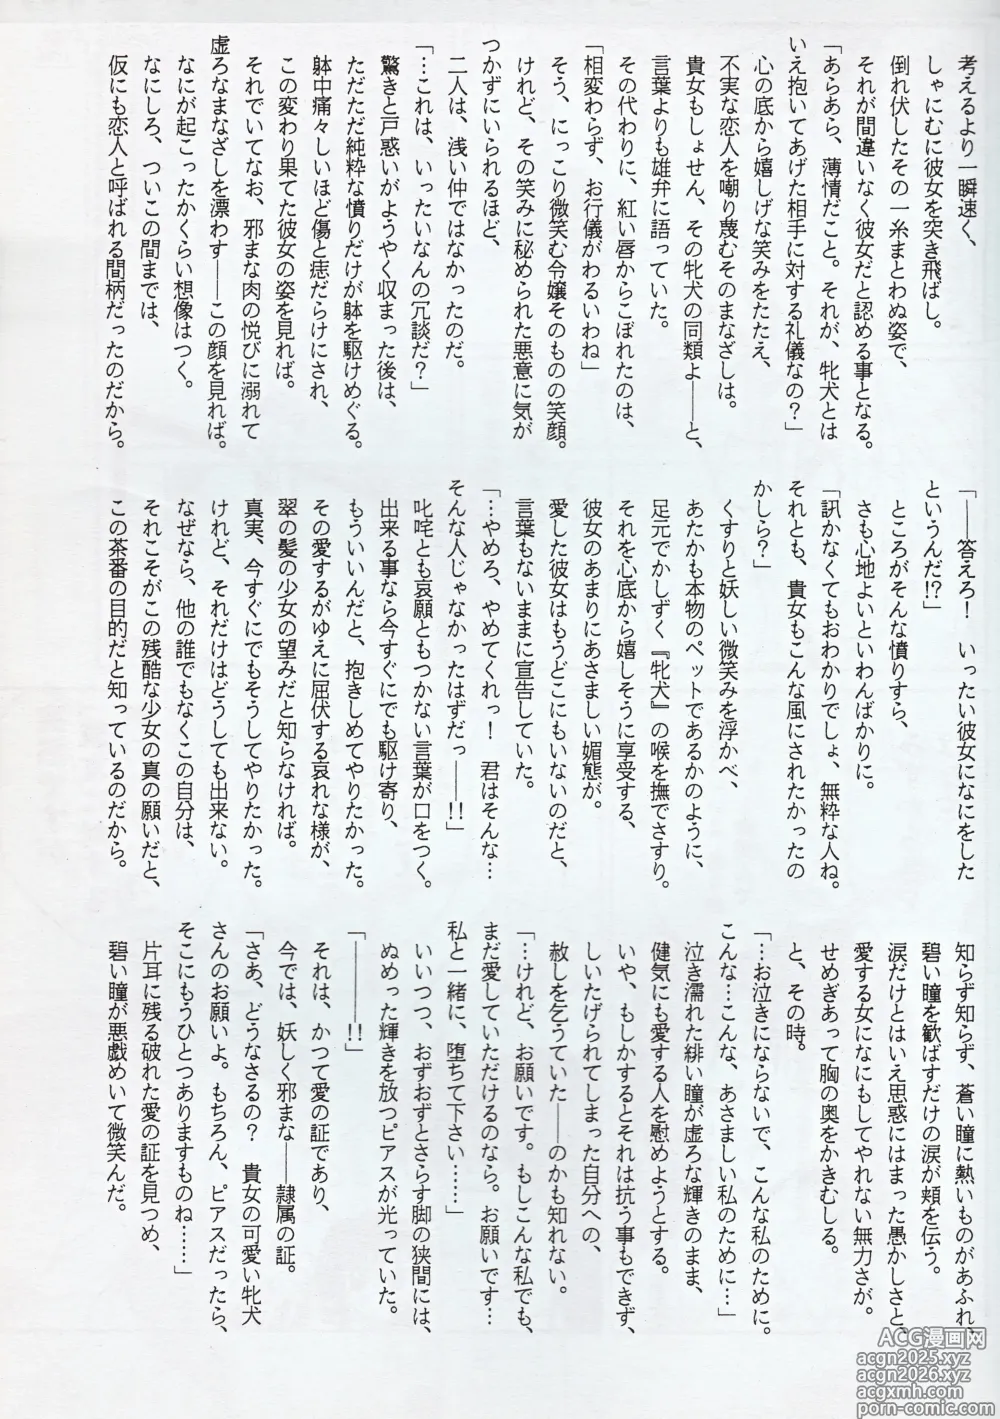 考えるより一瞬速く、
しゃにむに彼女を突き飛ばし。
倒れ伏したその一糸まとわぬ姿で、
それが間違いなく彼女だと認める事となる。
「あらあら、薄情だこと。それが、牝犬とは
いえ抱いてあげた相手に対する礼儀なの？」
心の底から嬉しげな笑みをたたえ、
不実な恋人を嘲り蔑むそのまなざしは。
貴女もしょせん、その牝犬の同類よ――と、
言葉よりも雄弁に語っていた。
その代わりに、紅い唇からこぼれたのは、
「相変わらず、お行儀がわるいわね」
そう、にっこり微笑む令嬢そのものの笑顔。
けれど、その笑みに秘められた悪意に気が
つかずにいられるほど、
二人は、浅い仲ではなかったのだ。
「…これは、いったいなんの冗談だ？」
驚きと戸惑いがようやく収まった後は、
ただただ純粋な憤りだけが躰を駆けめぐる。
躰中痛々しいほど傷と痣だらけにされ、
この変わり果てた彼女の姿を見れば。
それでいてなお、邪まな肉の悦びに溺れて
虚ろなまなざしを漂わす――この顔を見れば。
なにが起こったかくらい想像はつく。
なにしろ、ついこの間までは、
仮にも恋人と呼ばれる間柄だったのだから。
「――答えろ！　いったい彼女になにをした
というんだ!?」
ところがそんな憤りすら、
さも心地よいといわんばかりに。
「訊かなくてもおわかりでしょ、無粋な人ね。
それとも、貴女もこんな風にされたかったの
かしら？」
くすりと妖しい微笑みを浮かべ、
あたかも本物のペットであるかのように、
足元でかしずく『牝犬』の喉を撫でさすり。
それを心底から嬉しそうに享受する、
彼女のあまりにあさましい媚態が。
愛した彼女はもうどこにもいないのだと、
言葉もないままに宣告していた。
「…やめろ、やめてくれっ！　君はそんな…
そんな人じゃなかったはずだっ――!!」
叱咤とも哀願ともつかない言葉が口をつく。
出来る事なら今すぐにでも駆け寄り、
もういいんだと、抱きしめてやりたかった。
その愛するがゆえに屈伏する哀れな様が、
翠の髪の少女の望みだと知らなければ。
真実、今すぐにでもそうしてやりたかった。
けれど、それだけはどうしても出来ない。
なぜなら、他の誰でもなくこの自分は、
それこそがこの残酷な少女の真の願いだと、
この茶番の目的だと知っているのだから。
知らず知らず、蒼い瞳に熱いものがあふれ、
碧い瞳を歓ばすだけの涙が頬を伝う。
涙だけとはいえ思惑にはまった愚かしさと、
愛する女になにもしてやれない無力さが。
せめぎあって胸の奥をかきむしる。
と、その時。
「…お泣きにならないで、こんな私のために。
こんな…こんな、あさましい私のために…」
泣き濡れた緋い瞳が虚ろな輝きのまま、
健気にも愛する人を慰めようとする。
いや、もしかするとそれは抗う事もできず、
しいたげられてしまった自分への、
赦しを乞うていた――のかも知れない。
「…けれど、お願いです。もしこんな私でも、
まだ愛していただけるのなら。お願いです…
私と一緒に、堕ちて下さい……」
いいつつ、おずおずとさらす脚の狭間には、
ぬめった輝きを放つピアスが光っていた。
「――――!!」
それは、かつて愛の証であり、
今では、妖しく邪まな――隷属の証。
「さあ、どうなさるの？　貴女の可愛い牝犬
さんのお願いよ。もちろん、ピアスだったら、
そこにもうひとつありますものね……」
片耳に残る破れた愛の証を見つめ、
碧い瞳が悪戯めいて微笑んだ。
ACG漫画网
acgn2025.xyz
acgn2026.xyz
acgxmh.com
porn-comic.com